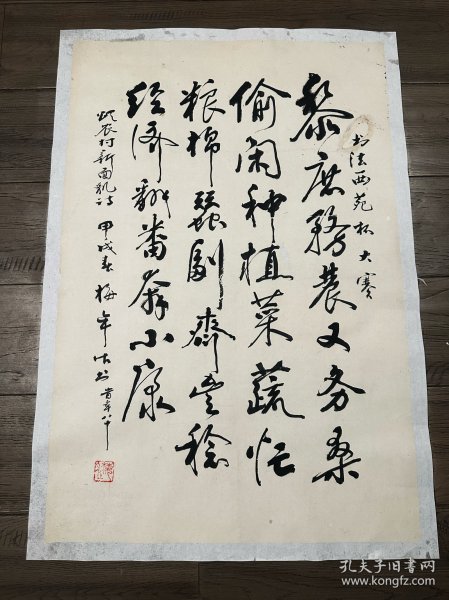 书法西苑杯大赛
黎庶務農又务桑
偷闲种植菜蔬忙
粮棉蚕副齊丰稔
经济翻番奔小康
咏农村新面貌诗 甲戌春 梅年
孔夫子旧书网
www.kongfz.com